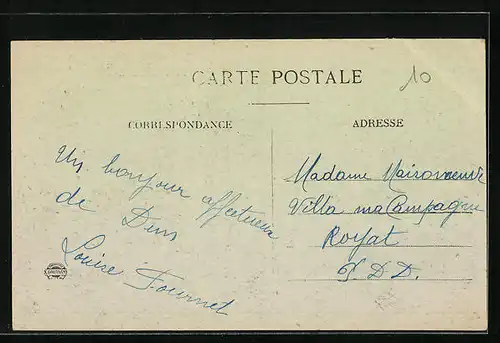 CARTE POSTALE
10
CORRESPONDANCE
ADRESSE
Un bonjour affectueux
de
Louise Fournet
Madame
Villa ma Campagne
Royat
P. D. D.